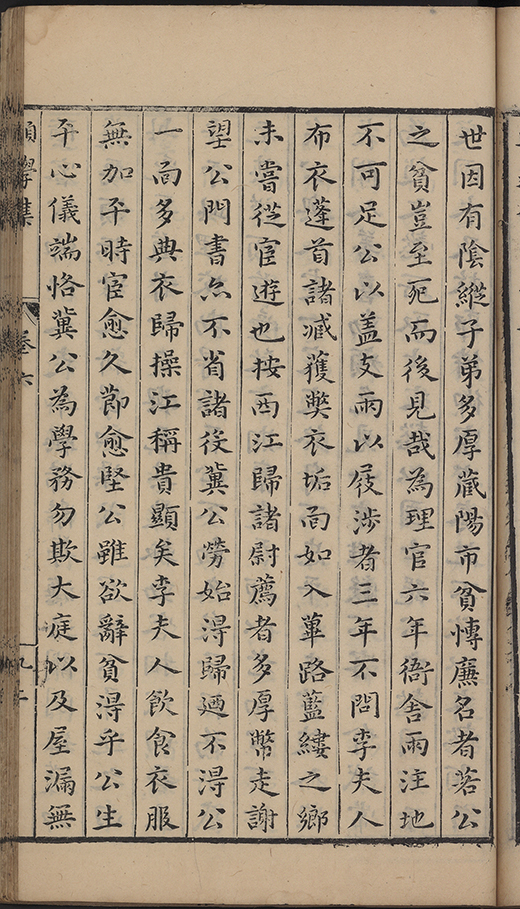 世因有陰縱子弟多厚藏陽市貧慱廉名者若公
之貧豈至死而後見哉為理官六年衙舍雨注地
不可足公以盖支雨以屐涉者三年不問李夫人
布衣蓬首諸臧獲獘衣垢面如入蓽路藍縷之鄉
未嘗從宦遊也按西江歸諸尉薦者多厚幣走謝
望公門書亦不省諸役冀公勞始淂歸廼不淂公
一面多典衣歸操江稱貴顯矣李夫人飲食衣服
無加平時宦愈久節愈堅公雖欲辭貧淂乎公生
平心儀端恪冀公為學務勿欺大庭以及屋漏無
學集
卷六